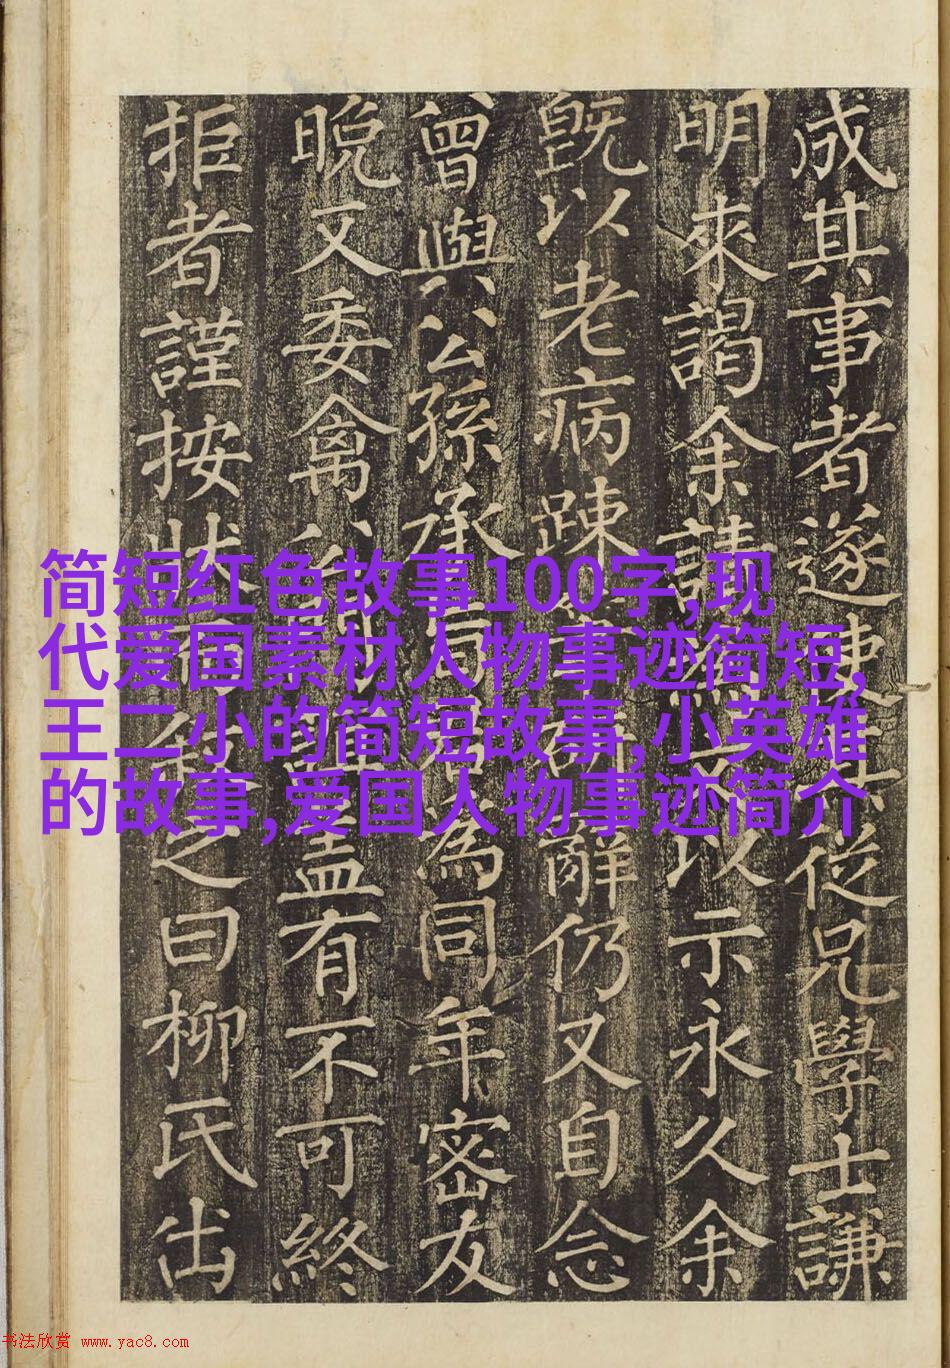 成其事者遂使其從兄學士謙
明來謁余請以示永久余
旣以老病踈辭仍又自念
曾與公孫承為同年密友
晚又委禽盖有不可終
拒者謹按狀之曰柳氏出
简短红色故事100字,现
代爱国素材人物事迹简短,
王二小的简短故事,小英雄
的故事,爱国人物事迹简介
书法欣赏 www.yac8.com